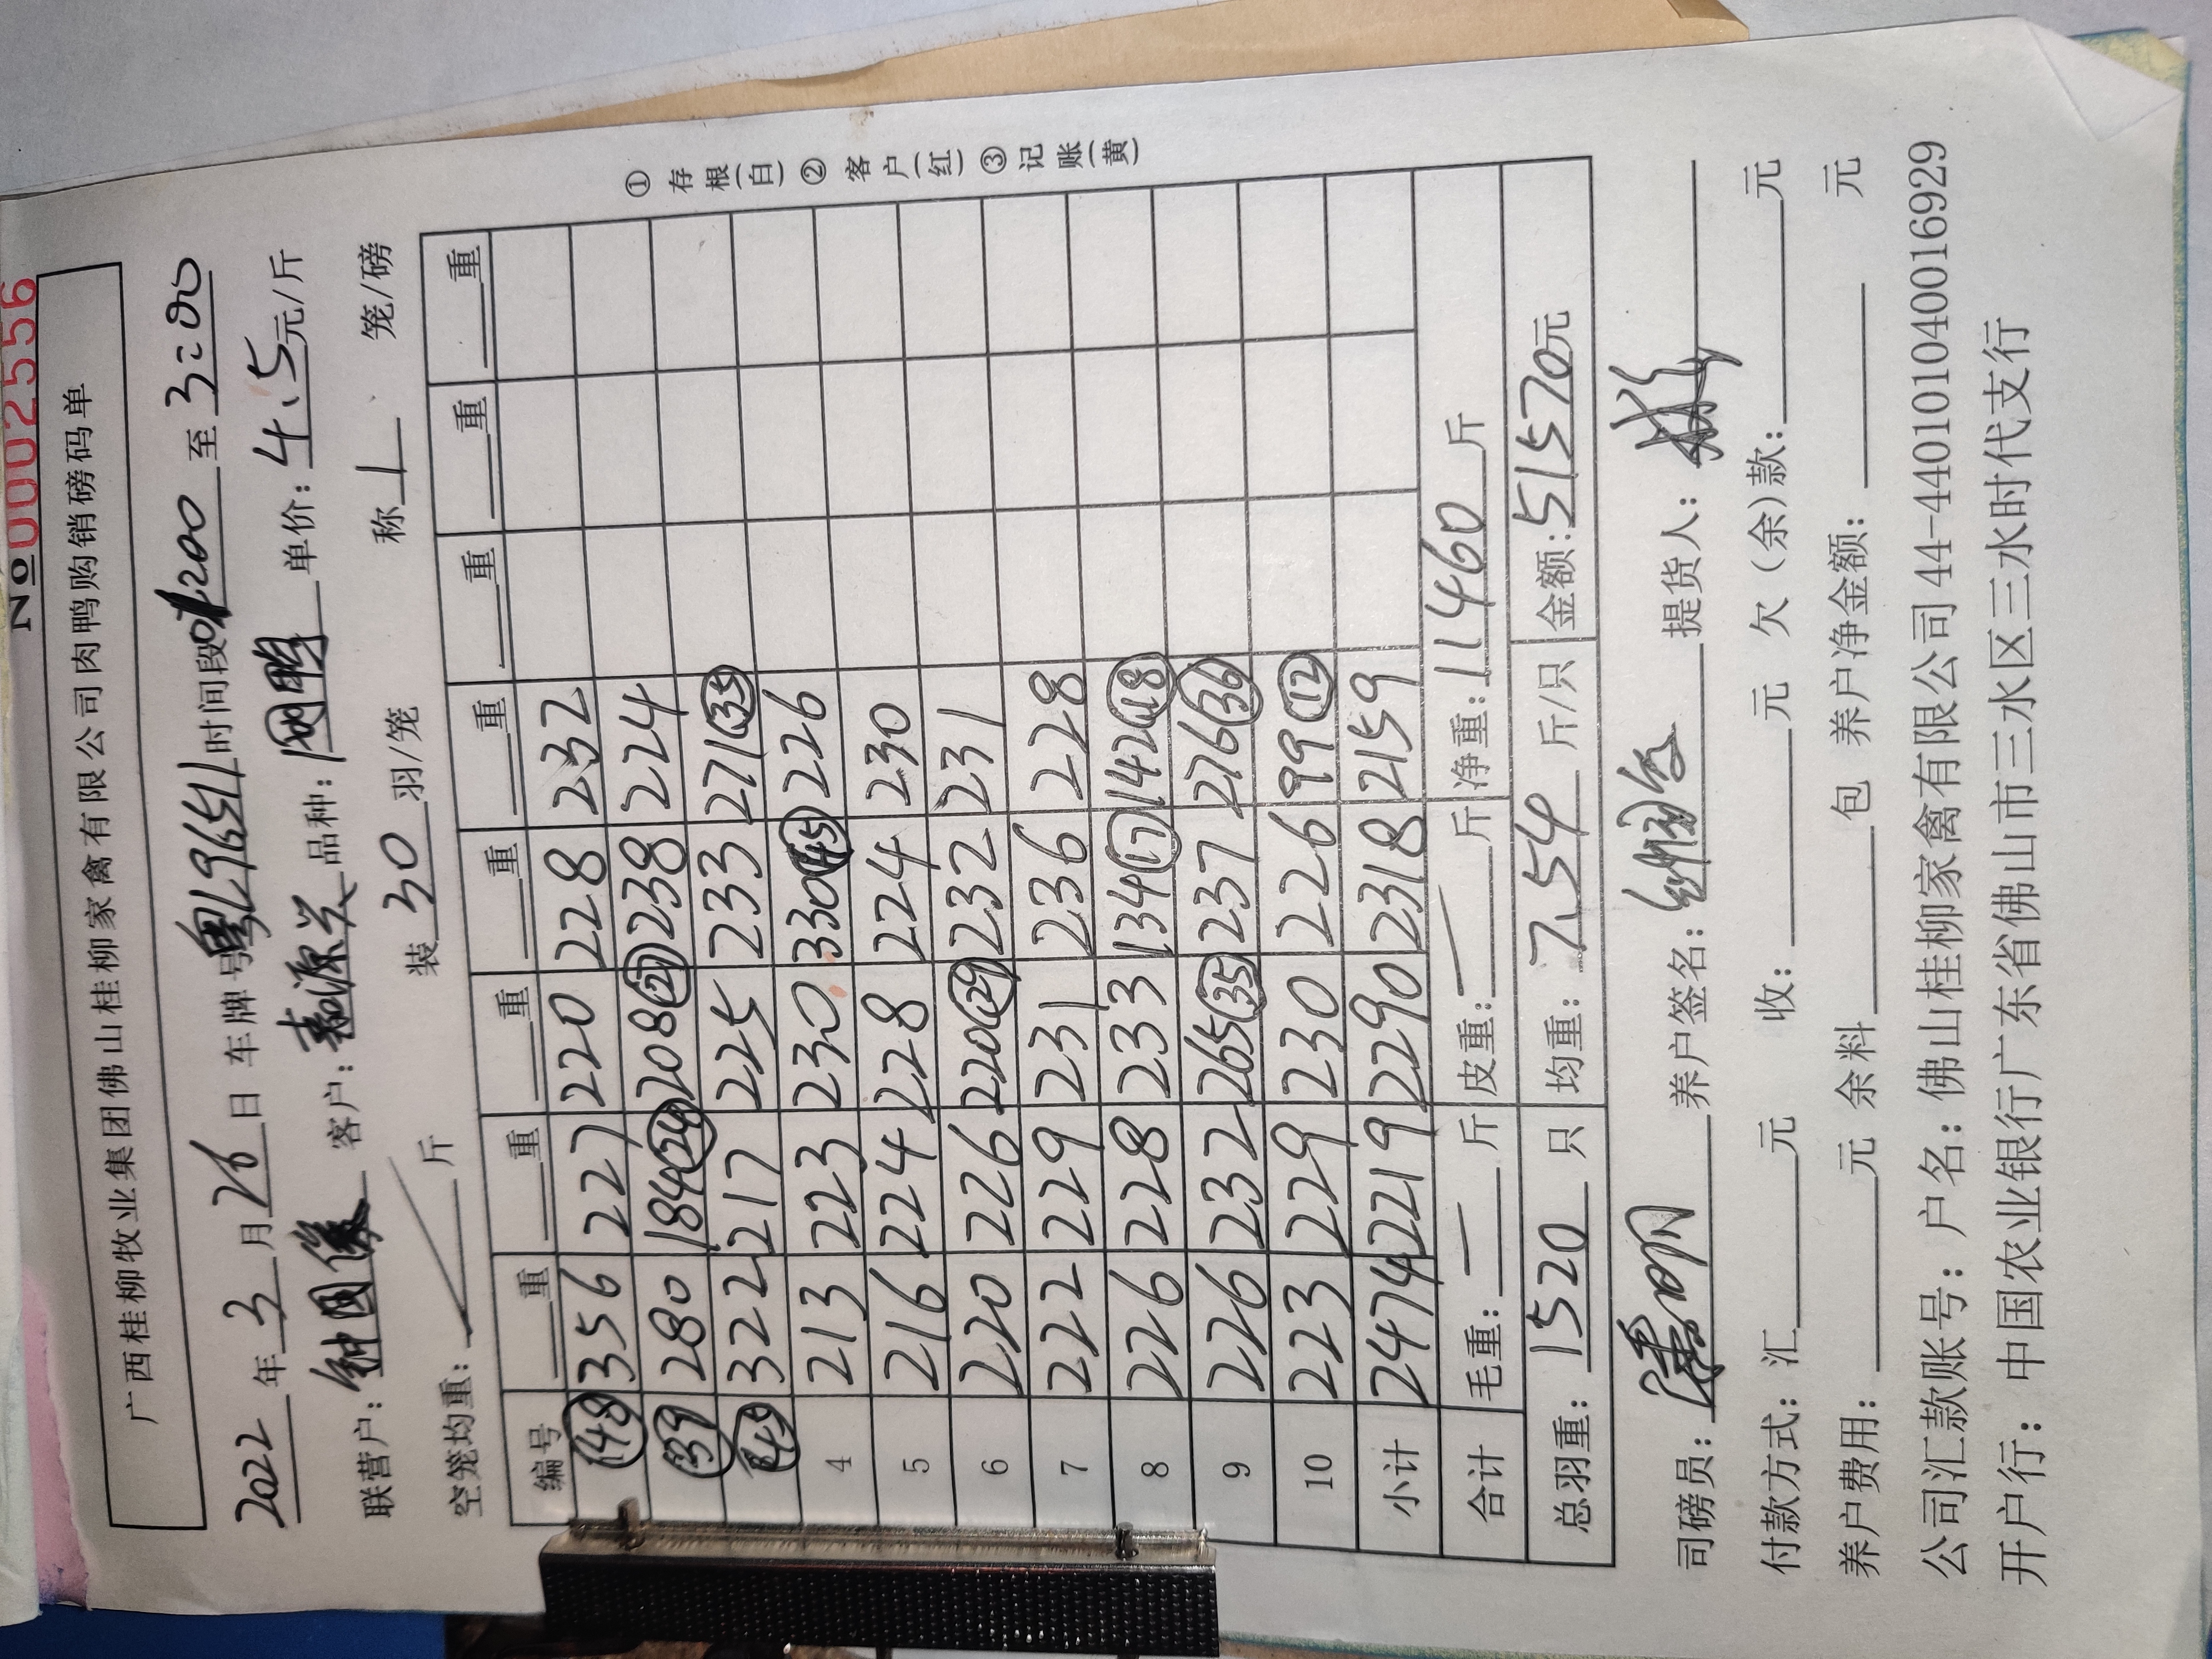 №0002556
广西桂柳牧业集团佛山桂柳家禽有限公司肉鸭购销磅码单
2022年3月26日 车牌号粤L9651时间段01200至3:00
联营户: 钟国 客户: 源兴 品种: 网鸭 单价: 4.5元/斤
空笼均重: 斤 装30羽/笼 称1 笼/磅
编号 重 重 重 重 重 重 重 重
48 356 227 220 228 232
39 280 184 24 208 27 238 224
43 322 217 225 233 271 35
4 213 223 230 330 45 226
5 216 224 228 224 230
6 220 226 220 29 232 231
7 222 229 231 236 228
8 226 228 233 134 17 142 18
9 226 232 265 35 237 276 36
10 223 229 230 226 99 12
小计 2474 2219 2290 2318 2159
合计 毛重: 斤 皮重: 斤 净重: 11460斤
总羽重: 1520只 均重: 7.54斤/只 金额: 51570元
① 存根(白) ② 客户(红) ③ 记账(黄)
司磅员: 养户签名: 提货人:
付款方式: 汇 元 收: 元 欠(余)款: 元
养户费用: 元 余料 包 养户净金额: 元
公司汇款账号: 户名: 佛山桂柳家禽有限公司 44-440101040016929
开户行: 中国农业银行广东省佛山市三水区三水时代支行